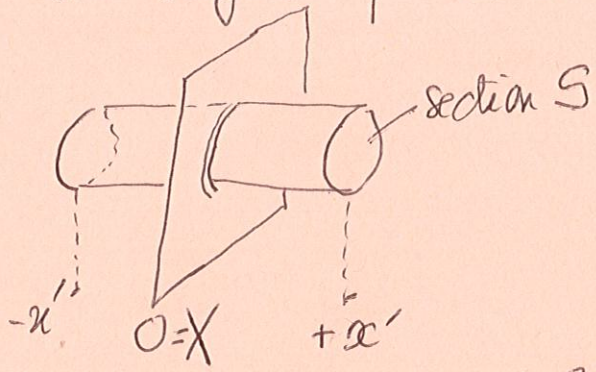 section S
-x' O=X +x'